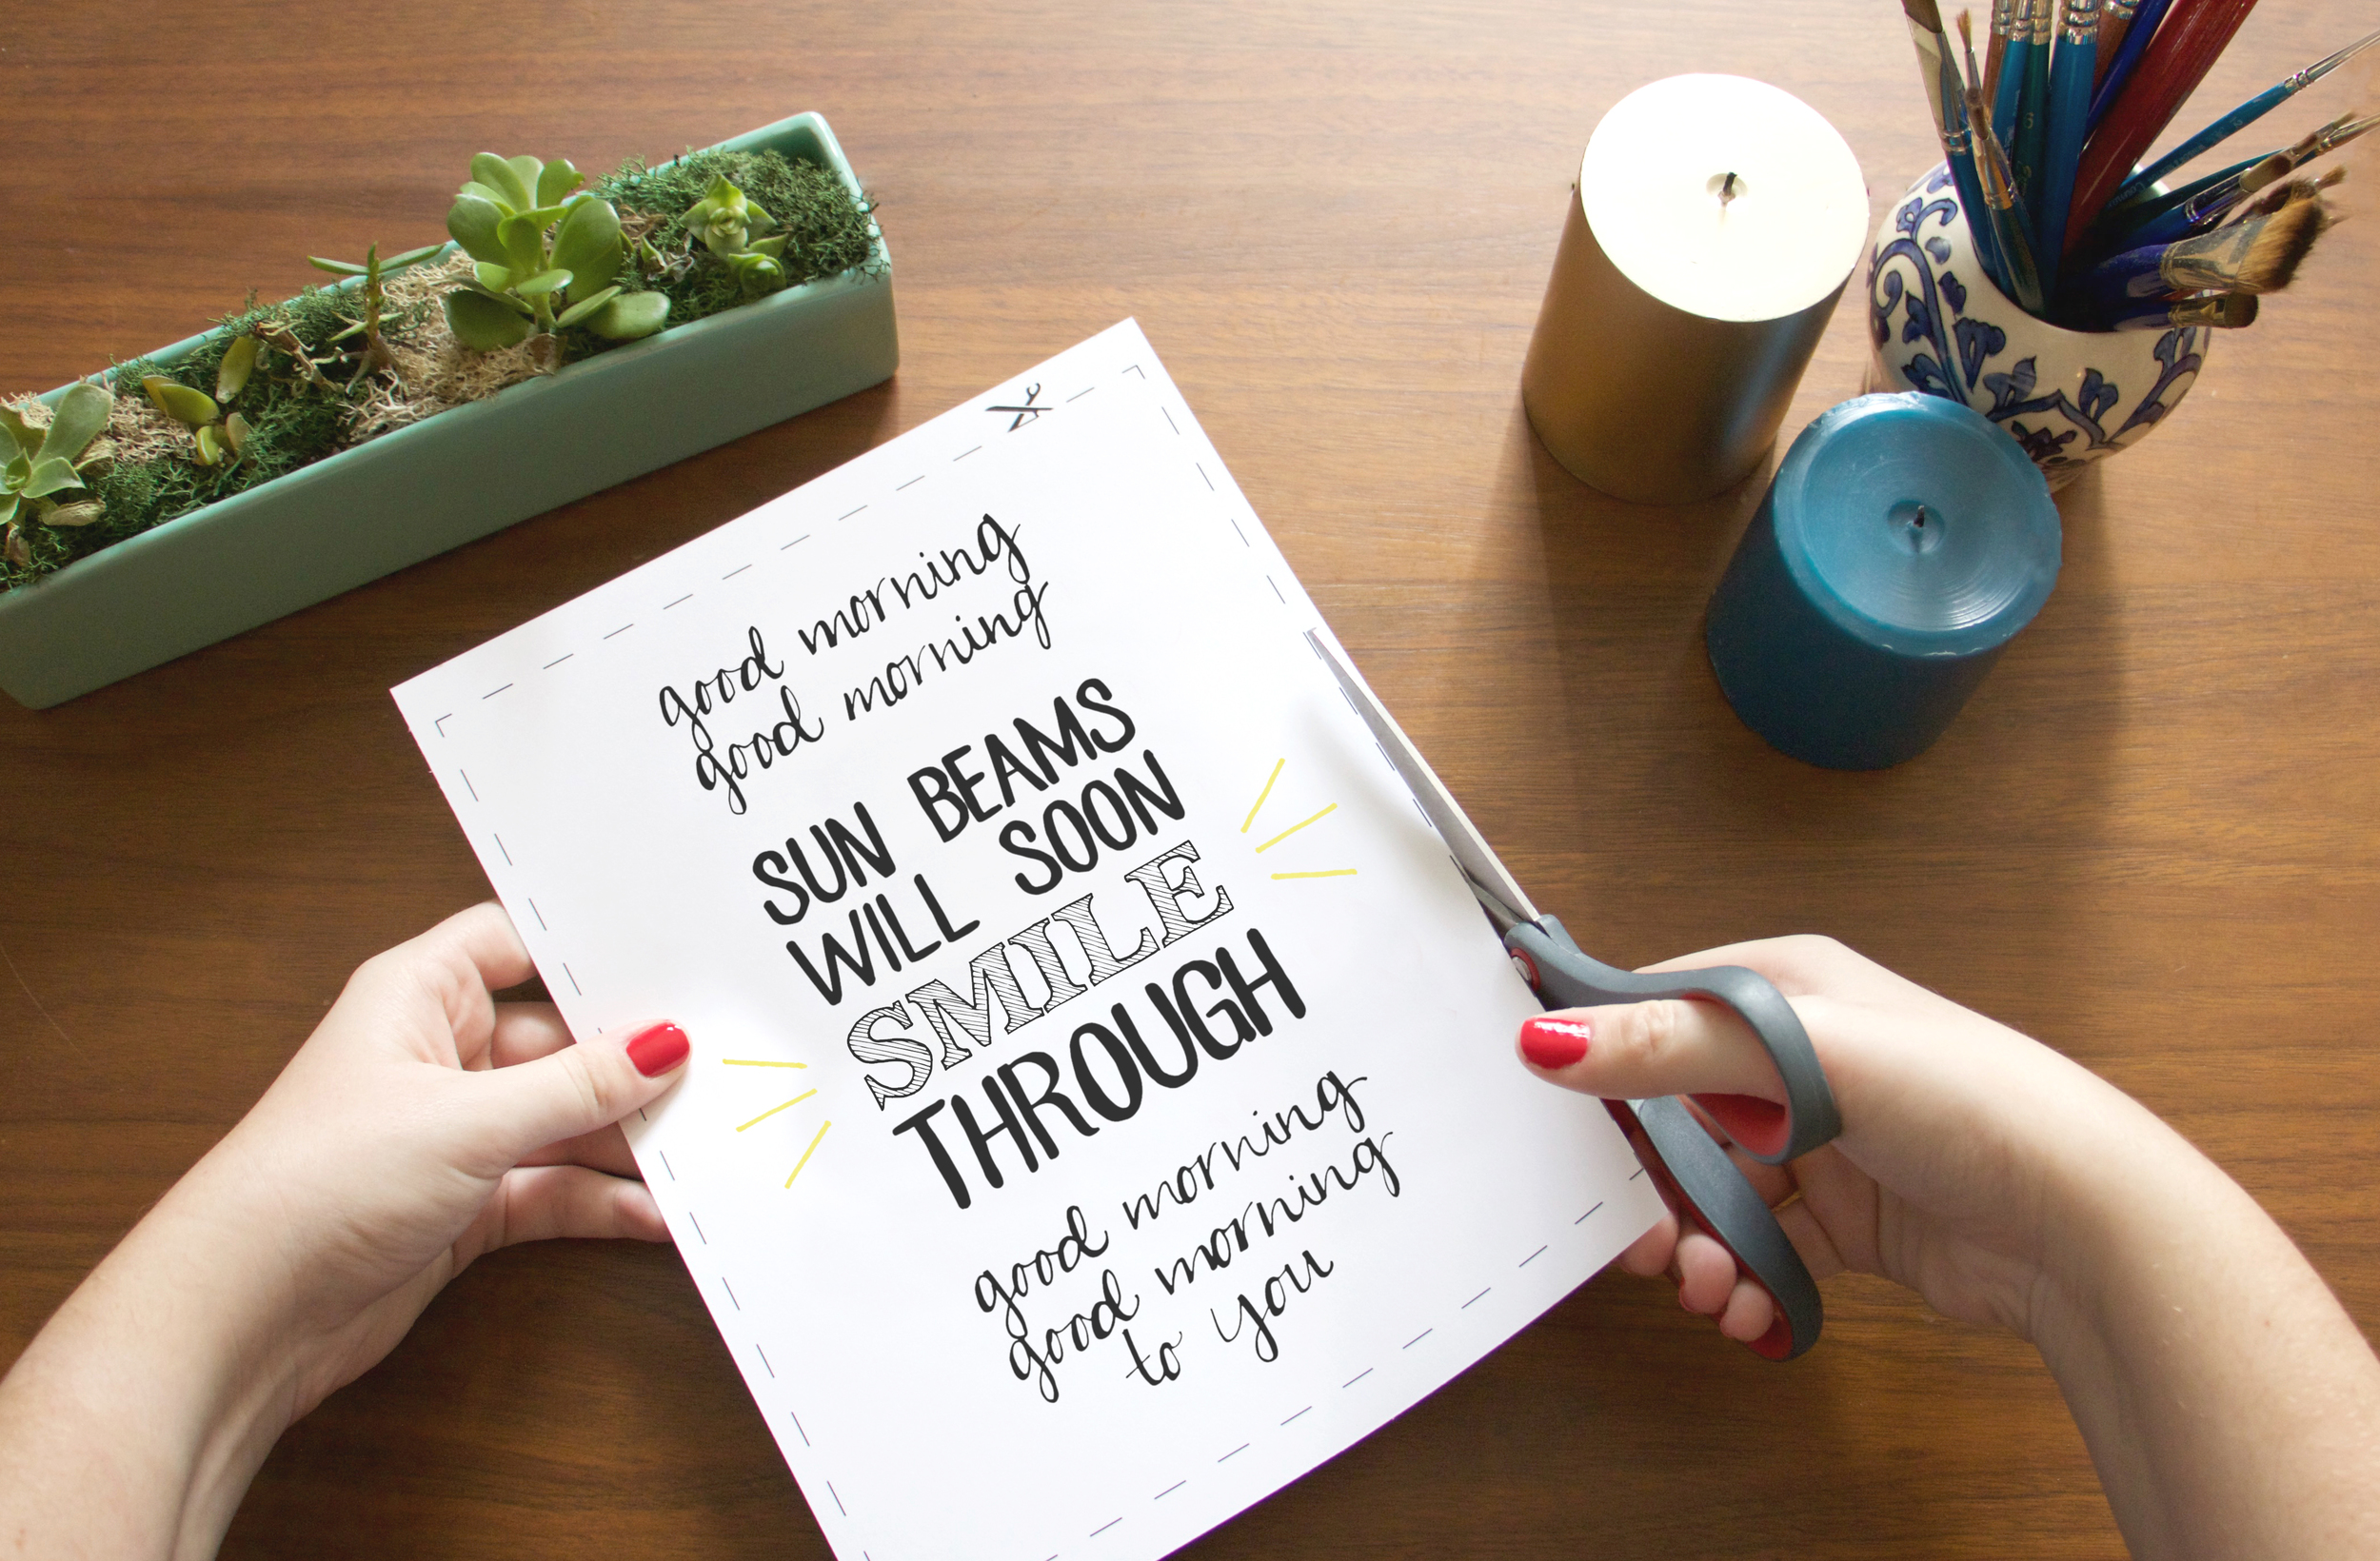 good morning
good morning
SUN BEAMS
WILL SOON
SMILE
THROUGH
good morning
good morning
to you